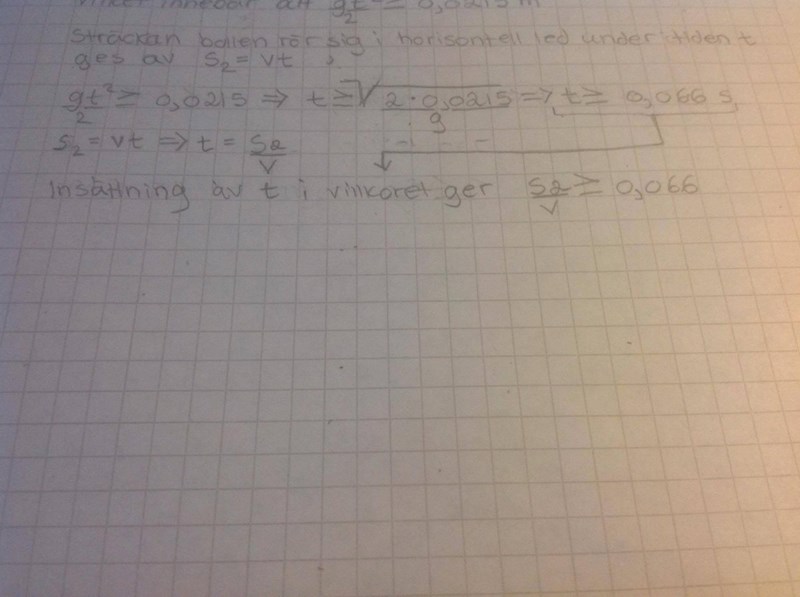 innebär att gt²/2 ≥ 0,0215 m
Sträckan bollen rör sig i horisontell led under tiden t
ges av S₂ = vt,
gt²/2 ≥ 0,0215 ⇒ t ≥ √(2·0,0215/g) ⇒ t ≥ 0,066 s
S₂ = vt ⇒ t = S₂/v
Insättning av t i villkoret ger S₂/v ≥ 0,066